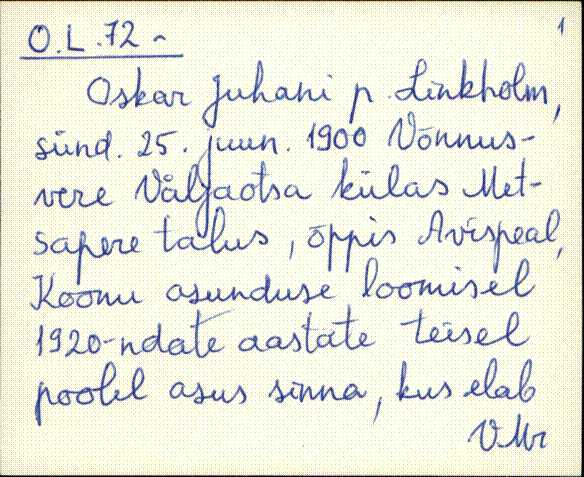 O.L.72-
1
Oskar Juhani p. Linkholm,
sünd. 25. juun. 1900 Võnnus-
vere Väljaotsa külas Met-
sapere talus, õppis Avispeal,
Koonu asunduse loomisel
1920-ndate aastate teisel
poolel asus sinna, kus elab
VMr